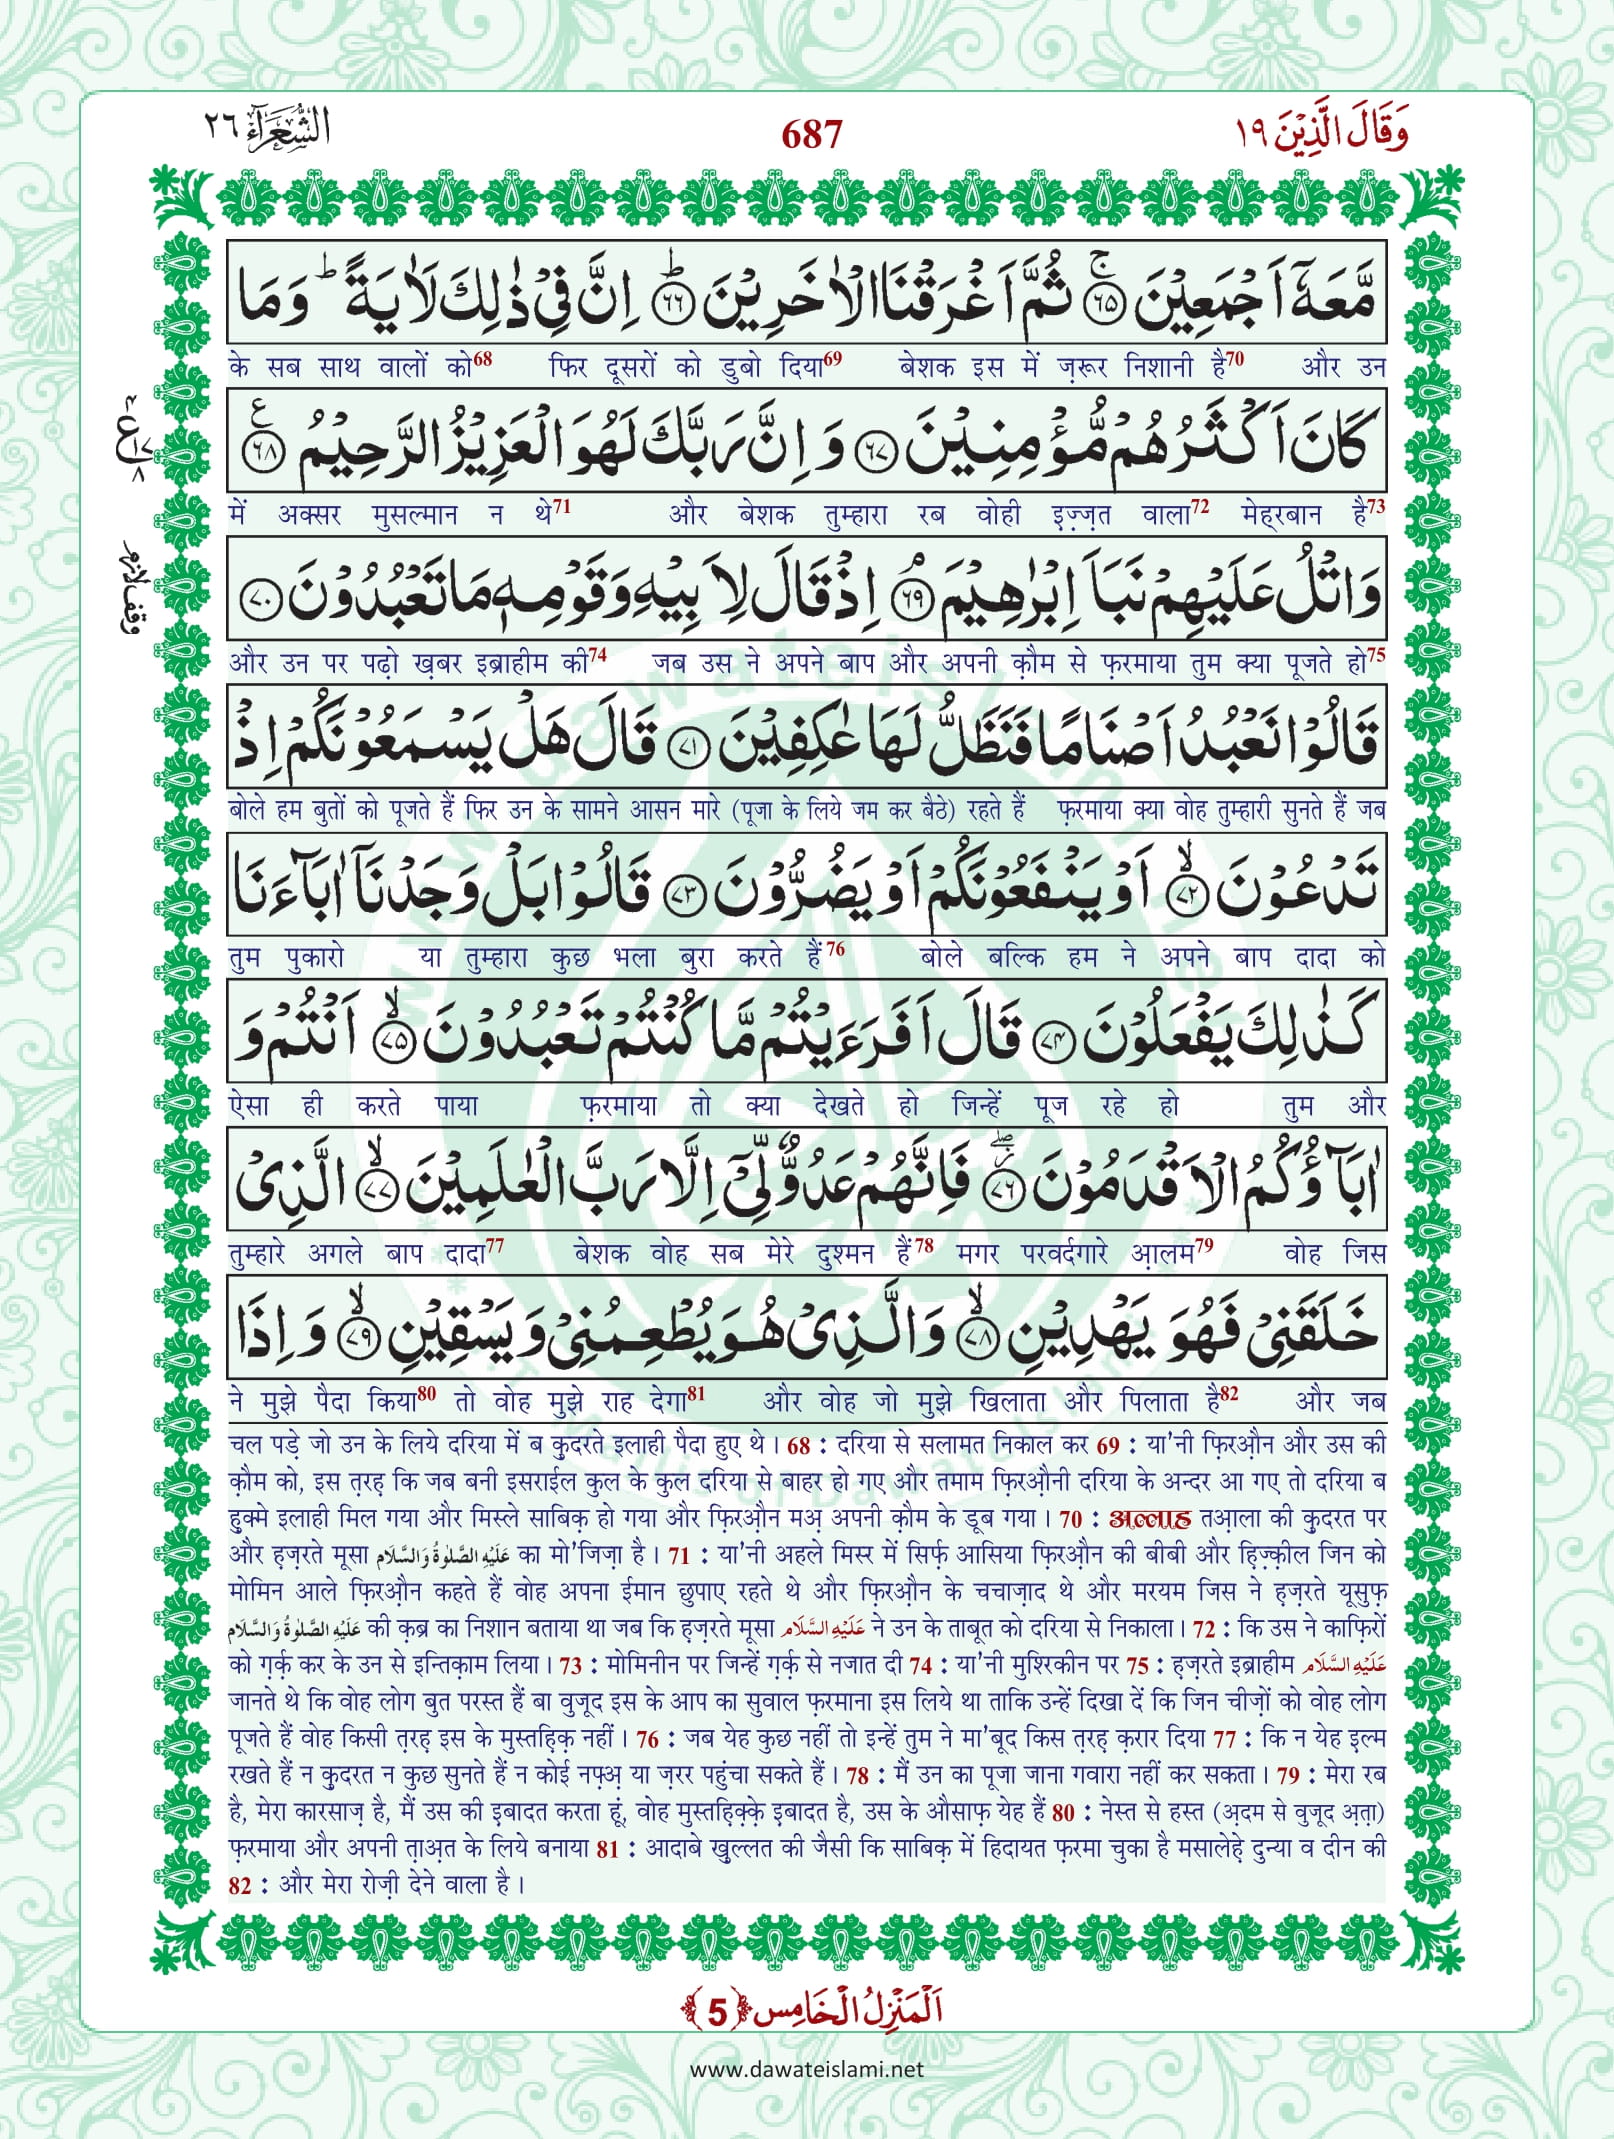 وَقَالَ الَّذِیْنَ ١٩
687
الشُّعَرَآء ٢٦
مَّعَهٗۤ اَجْمَعِیْنَ ۚ﴿۶۵﴾ ثُمَّ اَغْرَقْنَا الْاٰخَرِیْنَ ؕ﴿۶۶﴾ اِنَّ فِیْ ذٰلِكَ لَاٰیَةً ؕ وَمَا
के सब साथ वालों को68 फिर दूसरों को डुबो दिया69 बेशक इस में ज़रूर निशानी है70 और उन
كَانَ اَكْثَرُهُمْ مُّؤْمِنِیْنَ ﴿۶۷﴾ وَ اِنَّ رَبَّكَ لَهُوَ الْعَزِیْزُ الرَّحِیْمُ ﴿۶۸﴾ ع
में अक्सर मुसल्मान न थे71 और बेशक तुम्हारा रब वोही इज़्ज़त वाला72 मेह्रबान है73
وَاتْلُ عَلَیْهِمْ نَبَاَ اِبْرٰهِیْمَ ۘ﴿۶۹﴾ اِذْ قَالَ لِاَبِیْهِ وَقَوْمِهٖ مَا تَعْبُدُوْنَ ﴿۷۰﴾
وقف لازم
और उन पर पढ़ो ख़बर इब्राहीम की74 जब उस ने अपने बाप और अपनी क़ौम से फ़रमाया तुम क्या पूजते हो75
قَالُوْا نَعْبُدُ اَصْنَامًا فَنَظَلُّ لَهَا عٰكِفِیْنَ ﴿۷۱﴾ قَالَ هَلْ یَسْمَعُوْنَكُمْ اِذْ
बोले हम बुतों को पूजते हैं फिर उन के सामने आसन मारे (पूजा के लिये जम कर बैठे) रहते हैं फ़रमाया क्या वोह तुम्हारी सुनते हैं जब
تَدْعُوْنَ ۙ﴿۷۲﴾ اَوْ یَنْفَعُوْنَكُمْ اَوْ یَضُرُّوْنَ ﴿۷۳﴾ قَالُوْا بَلْ وَجَدْنَاۤ اٰبَآءَنَا
तुम पुकारो या तुम्हारा कुछ भला बुरा करते हैं76 बोले बल्कि हम ने अपने बाप दादा को
كَذٰلِكَ یَفْعَلُوْنَ ﴿۷۴﴾ قَالَ اَفَرَءَیْتُمْ مَّا كُنْتُمْ تَعْبُدُوْنَ ۙ﴿۷۵﴾ اَنْتُمْ وَ
ऐसा ही करते पाया फ़रमाया तो क्या देखते हो जिन्हें पूज रहे हो तुम और
اٰبَآؤُكُمُ الْاَقْدَمُوْنَ ﴿۷۶﴾ فَاِنَّهُمْ عَدُوٌّ لِّیْۤ اِلَّا رَبَّ الْعٰلَمِیْنَ ۙ﴿۷۷﴾ الَّذِیْ
तुम्हारे अगले बाप दादा77 बेशक वोह सब मेरे दुश्मन हैं78 मगर परवर्दगारे आ़लम79 वोह जिस
خَلَقَنِیْ فَهُوَ یَهْدِیْنِ ۙ﴿۷۸﴾ وَالَّذِیْ هُوَ یُطْعِمُنِیْ وَ یَسْقِیْنِ ۙ﴿۷۹﴾ وَ اِذَا
ने मुझे पैदा किया80 तो वोह मुझे राह देगा81 और वोह जो मुझे खिलाता और पिलाता है82 और जब
चल पड़े जो उन के लिये दरिया में ब कु़दरते इलाही पैदा हुए थे । 68 : दरिया से सलामत निकाल कर 69 : या'नी फ़िरऔ़न और उस की
क़ौम को, इस त़रह़ कि जब बनी इसराईल कुल के कुल दरिया से बाहर हो गए और तमाम फ़िरऔ़नी दरिया के अन्दर आ गए तो दरिया ब
हु़क्मे इलाही मिल गया और मिस्ले साबिक़ हो गया और फ़िरऔ़न मअ़ अपनी क़ौम के डूब गया । 70 : अल्लाह तआ़ला की कु़दरत पर
और ह़ज़रते मूसा عَلَیْهِ الصَّلٰوةُ وَالسَّلَام का मो'जिज़ा है । 71 : या'नी अहले मिस्र में सिर्फ़ आसिया फ़िरऔ़न की बीबी और ह़िज़्क़ील जिन को
मोमिन आले फ़िरऔ़न कहते हैं वोह अपना ईमान छुपाए रहते थे और फ़िरऔ़न के चचाज़ाद थे और मरयम जिस ने ह़ज़रते यूसुफ़
عَلَیْهِ الصَّلٰوةُ وَالسَّلَام की क़ब्र का निशान बताया था जब कि ह़ज़रते मूसा عَلَیْهِ السَّلَام ने उन के ताबूत को दरिया से निकाला । 72 : कि उस ने काफ़िरों
को ग़र्क़ कर के उन से इन्तिक़ाम लिया । 73 : मोमिनीन पर जिन्हें ग़र्क़ से नजात दी 74 : या'नी मुश्रिकीन पर 75 : ह़ज़रते इब्राहीम عَلَیْهِ السَّلَام
जानते थे कि वोह लोग बुत परस्त हैं बा वुजूद इस के आप का सुवाल फ़रमाना इस लिये था ताकि उन्हें दिखा दें कि जिन चीज़ों को वोह लोग
पूजते हैं वोह किसी त़रह़ इस के मुस्तहि़क़ नहीं । 76 : जब येह कुछ नहीं तो इन्हें तुम ने मा'बूद किस त़रह़ क़रार दिया 77 : कि न येह इल्म
रखते हैं न कु़दरत न कुछ सुनते हैं न कोई नफ़्अ़ या ज़रर पहुंचा सकते हैं । 78 : मैं उन का पूजा जाना गवारा नहीं कर सकता । 79 : मेरा रब
है, मेरा कारसाज़ है, मैं उस की इ़बादत करता हूं, वोह मुस्तहि़क़्क़े इ़बादत है, उस के औसाफ़ येह हैं 80 : नेस्त से हस्त (अ़दम से वुजूद अ़त़ा)
फ़रमाया और अपनी त़ाअ़त के लिये बनाया 81 : आदाबे खु़ल्लत की जैसी कि साबिक़ में हिदायत फ़रमा चुका है मसालेहे़ दुन्या व दीन की
82 : और मेरा रोज़ी देने वाला है ।
اَلْمَنْزِلُ الْخَامِس ﴿5﴾
www.dawateislami.net